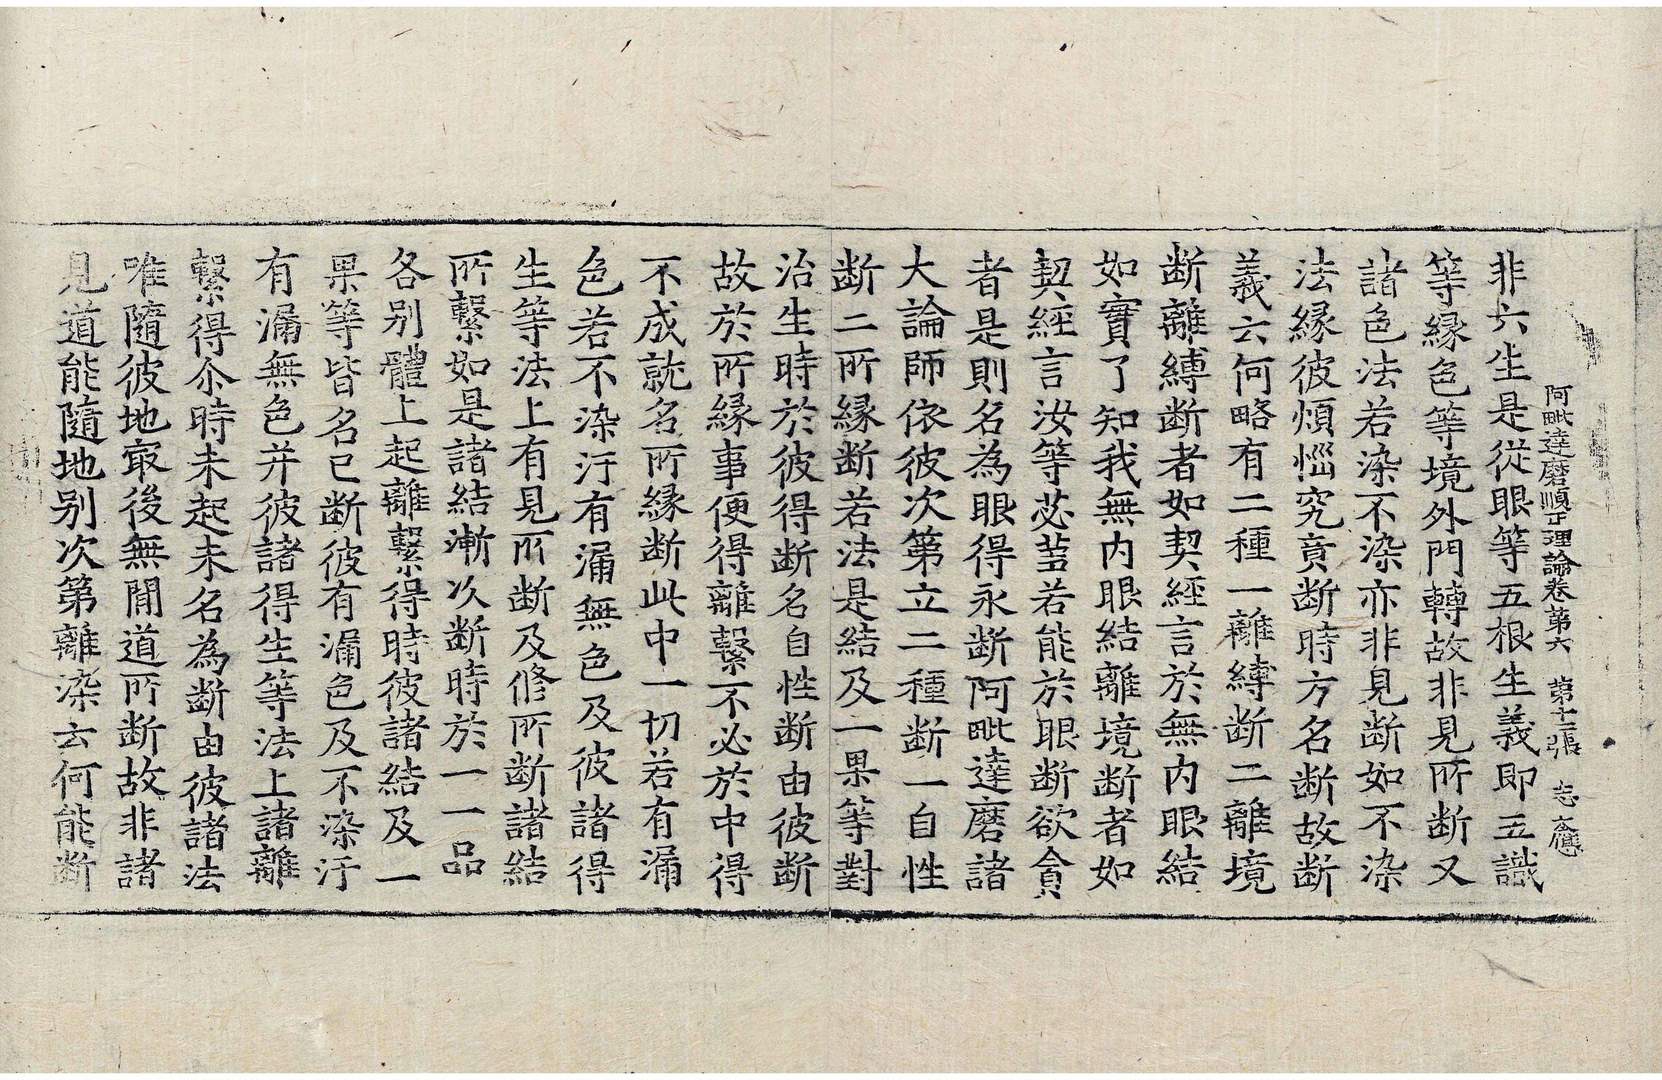 阿毗達磨順正理論卷第六 第十二張 志應
非六生是從眼等五根生義即五識
等緣色等境外門轉故非見所斷又
諸色法若染不染亦非見斷如不染
法緣彼煩惱究竟斷時方名斷故斷
義云何略有二種一離縛斷二離境
斷離縛斷者如契經言於無內眼結
如實了知我無內眼結離境斷者如
契經言汝等苾芻若能於眼斷欲貪
者是則名為眼得永斷阿毗達磨諸
大論師依彼次第立二種斷一自性
斷二所緣斷若法是結及一果等對
治生時於彼得斷名自性斷由彼斷
故於所緣事便得離繫不必於中得
不成就名所緣斷此中一切若有漏
色若不染汙有漏無色及彼諸得
生等法上有見所斷及修所斷諸結
所繫如是諸結漸次斷時於一一品
各別體上起離繫得時彼諸結及一
果等皆名已斷彼有漏色及不染汙
有漏無色并彼諸得生等法上諸離
繫得尒時未起未名為斷由彼諸法
唯隨彼地㝡後無間道所斷故非諸
見道能隨地別次第離染云何能斷